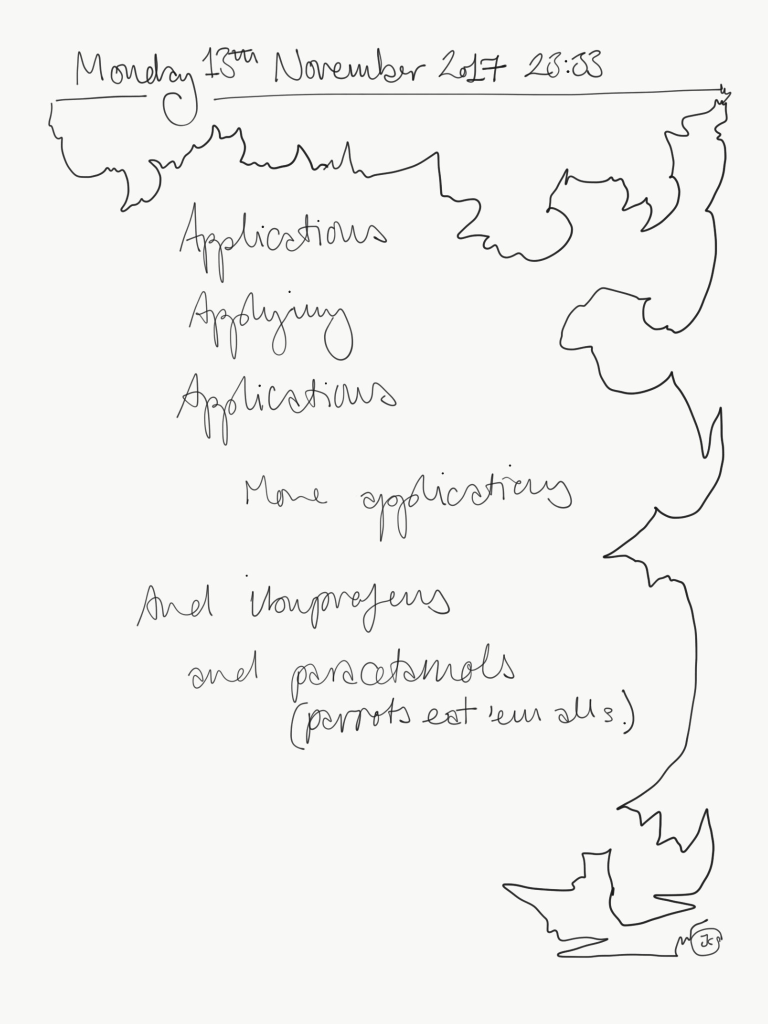 Monday 13th November 2017 23:33
Applications
Applying
Applications
More applications
And ibuprofens
and paracetamols
(parrots eat 'em alls.)
JK